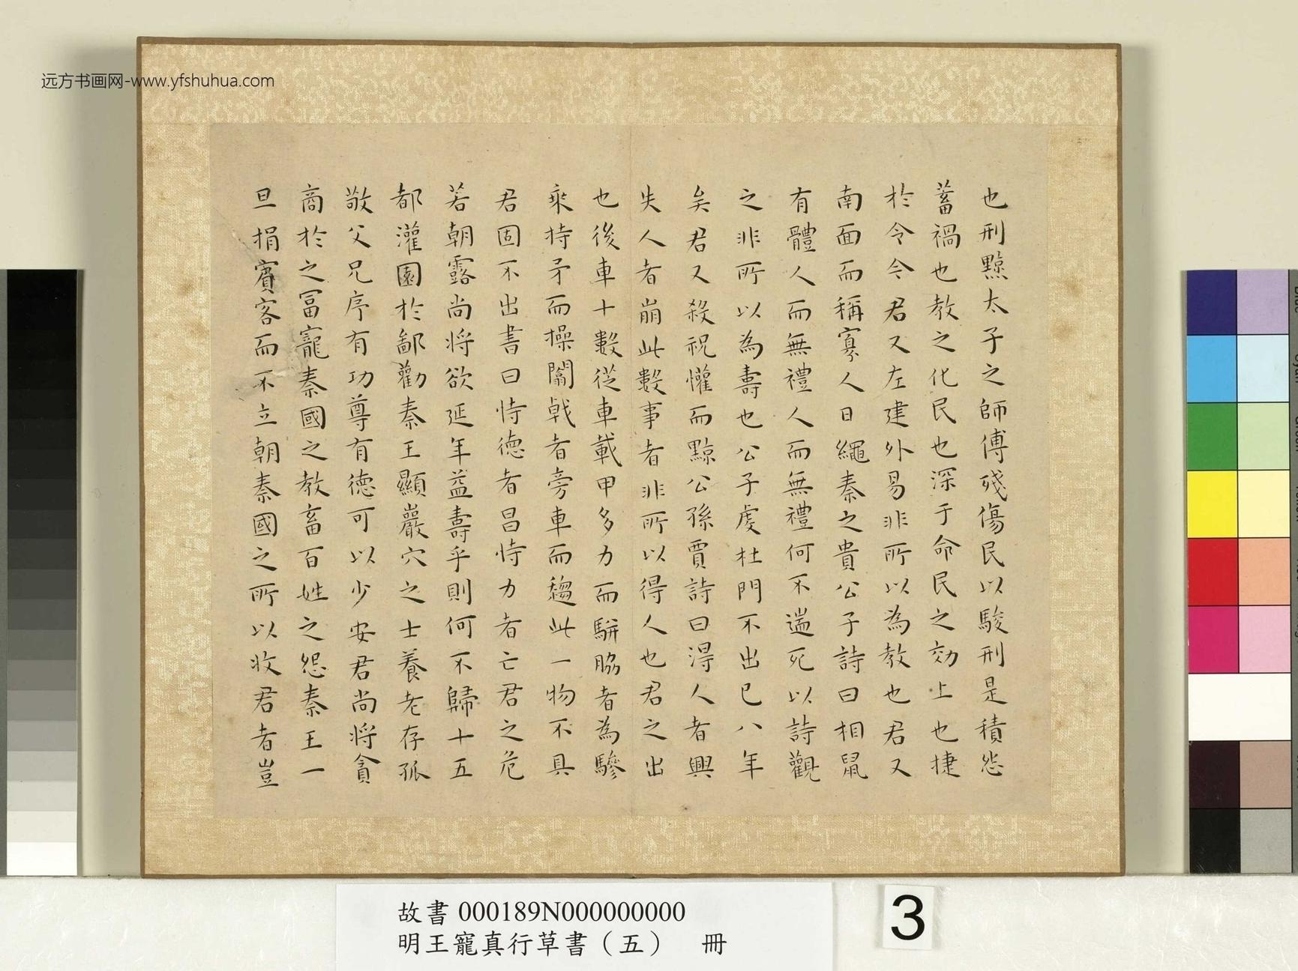 远方书画网-www.yfshuhua.com
也刑黥太子之師傅殘傷民以駿刑是積怨
蓄禍也教之化民也深于命民之効上也捷
於令令君又左建外易非所以為教也君又
南面而稱寡人日繩秦之貴公子詩曰相鼠
有體人而無禮人而無禮何不遄死以詩觀
之非所以為壽也公子虔杜門不出已八年
矣君又殺祝懽而黥公孫賈詩曰得人者興
失人者崩此數事者非所以得人也君之出
也後車十數從車載甲多力而駢脇者為驂
乘持矛而操闟戟者旁車而趨此一物不具
君固不出書曰恃德者昌恃力者亡君之危
若朝露尚將欲延年益壽乎則何不歸十五
都灌園於鄙勸秦王顯巖穴之士養老存孤
敬父兄序有功尊有德可以少安君尚將貪
商於之冨寵秦國之教畜百姓之怨秦王一
旦捐賓客而不立朝秦國之所以收君者豈
故書 000189N000000000
明王寵真行草書（五） 冊
3